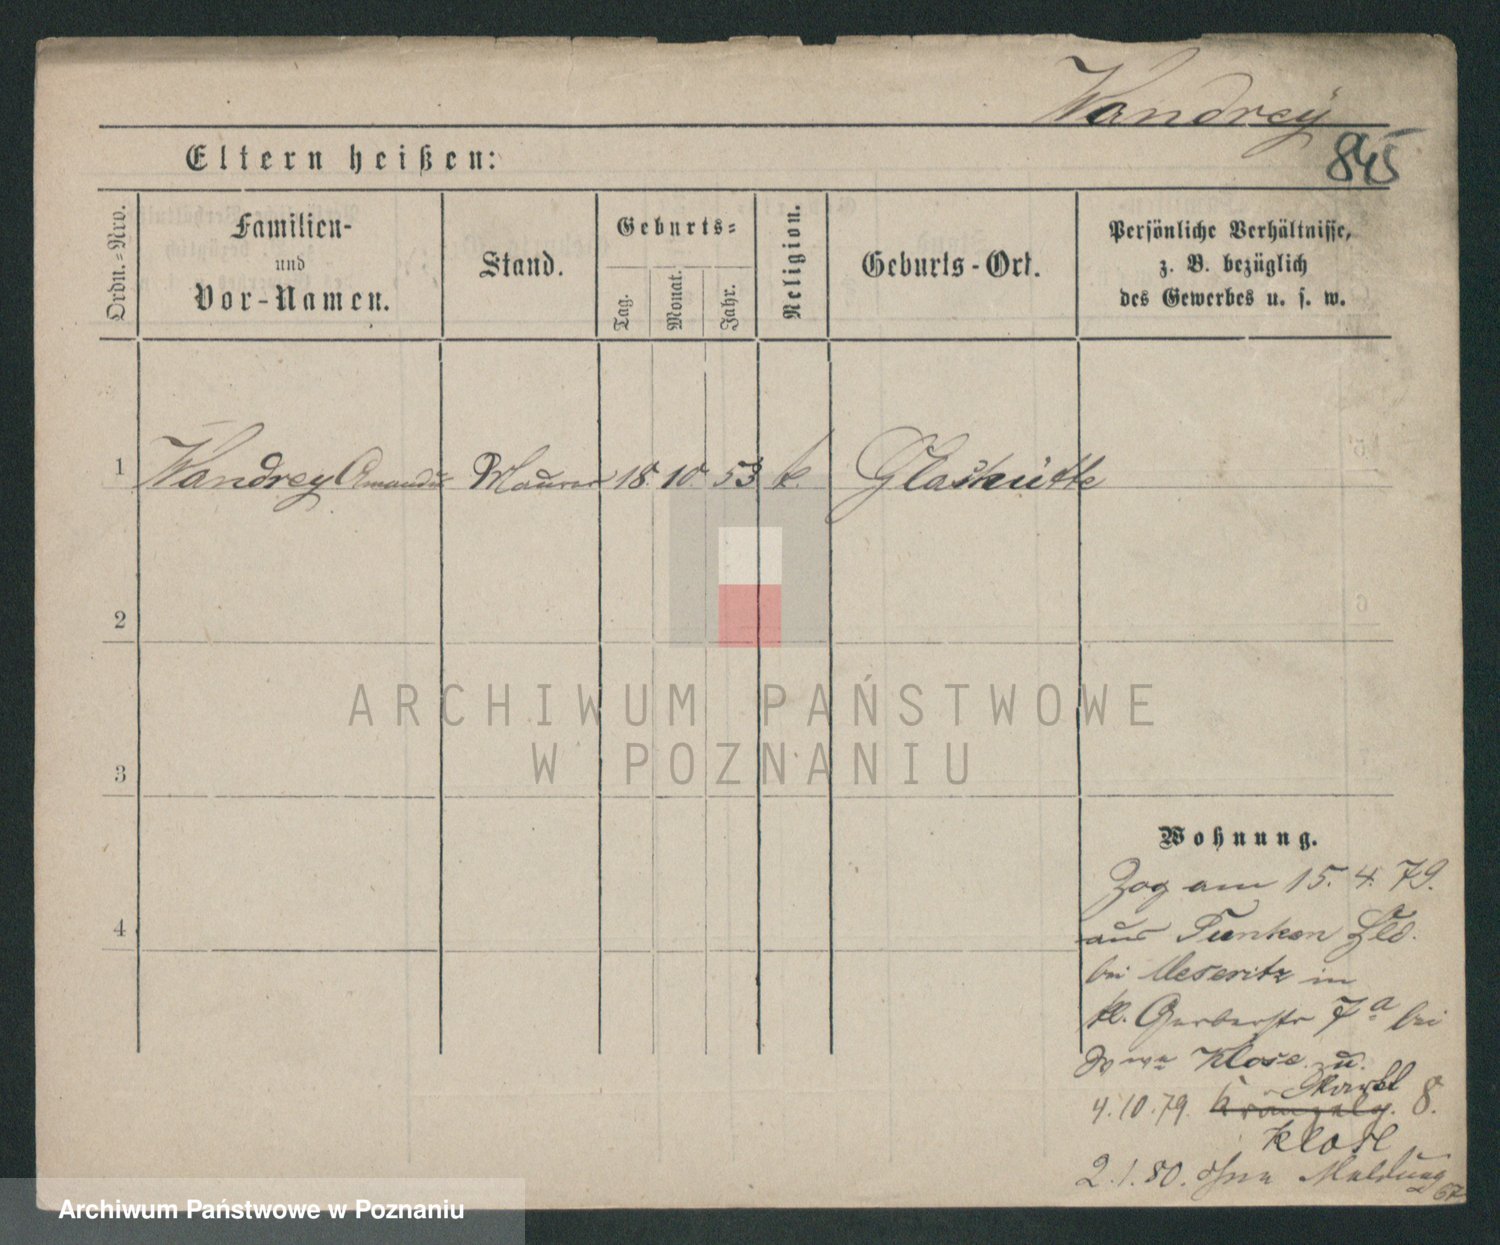 Wandrey
845
Eltern heißen:
Ordn.-Nro.
Familien-
und
Vor-Namen.
Stand.
Geburts-
Tag.
Monat.
Jahr.
Religion.
Geburts-Ort.
Persönliche Verhältnisse,
z. B. bezüglich
des Gewerbes u. s. w.
1 Wandrey Amandus Maurer 18. 10. 53 k. Glashütte
2
3
4
ARCHIWUM PAŃSTWOWE
W POZNANIU
Wohnung.
Zog am 15. 4. 79.
aus Tunken Hld.
bei Meseritz in
kl. Gerberstr 7a bei
Wwe Klose u.
4. 10. 79. 8.
Klose
2. 1. 80. ohne Meldung
Archiwum Państwowe w Poznaniu